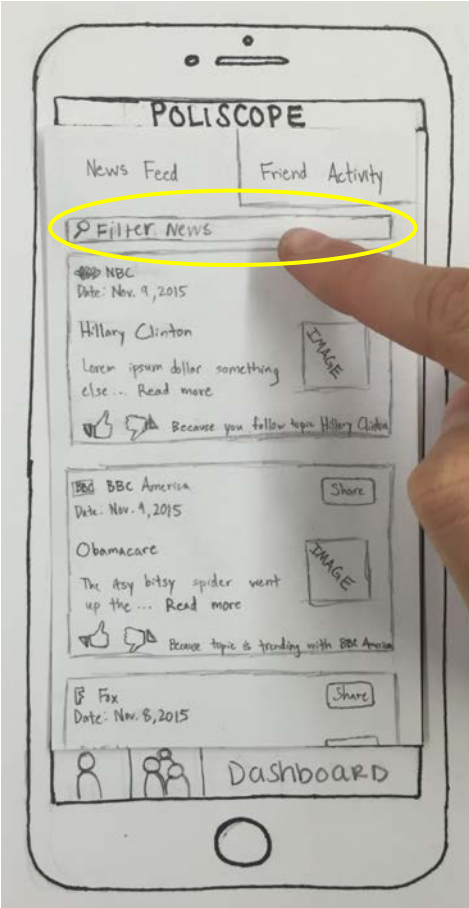 POLISCOPE
News Feed
Friend Activity
Filter News
NBC
Date: Nov. 9, 2015
Hillary Clinton
Lorem ipsum dollar something
else... Read more
IMAGE
Because you follow topic Hillary Clinton
BBC BBC America
Share
Date: Nov. 9, 2015
Obamacare
The itsy bitsy spider went
up the ... Read more
IMAGE
Because topic is trending with BBC America
F Fox
Share
Date: Nov. 8, 2015
Dashboard